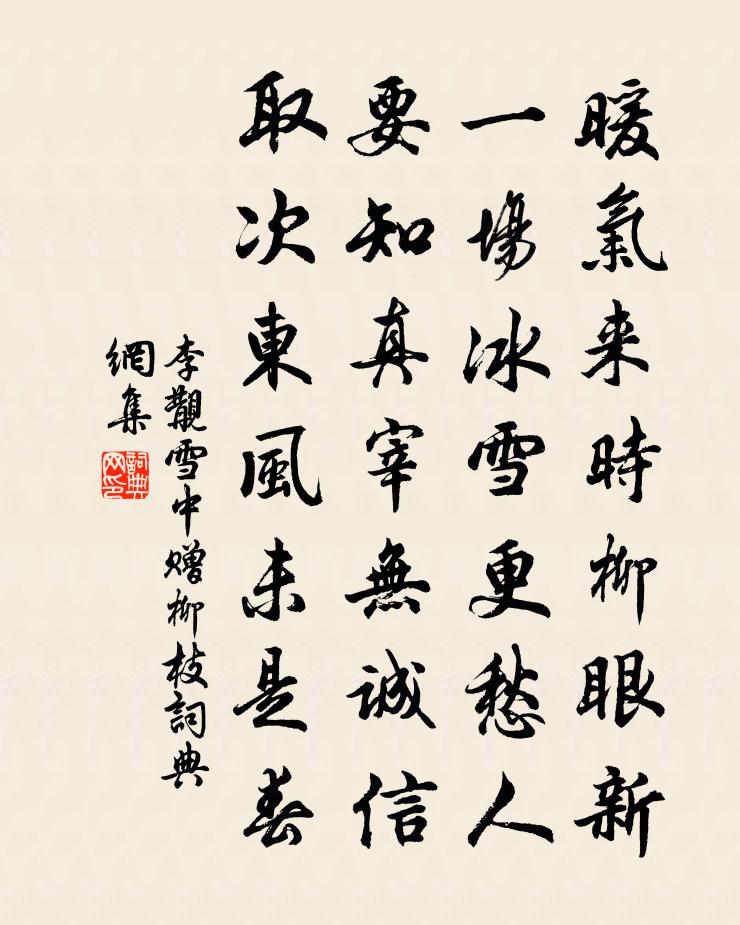 暖氣来時柳眼新
一場冰雪更愁人
要知真宰無誠信
取次東風未是春
李觀雪中贈柳枝詞典
網集
詞典网印